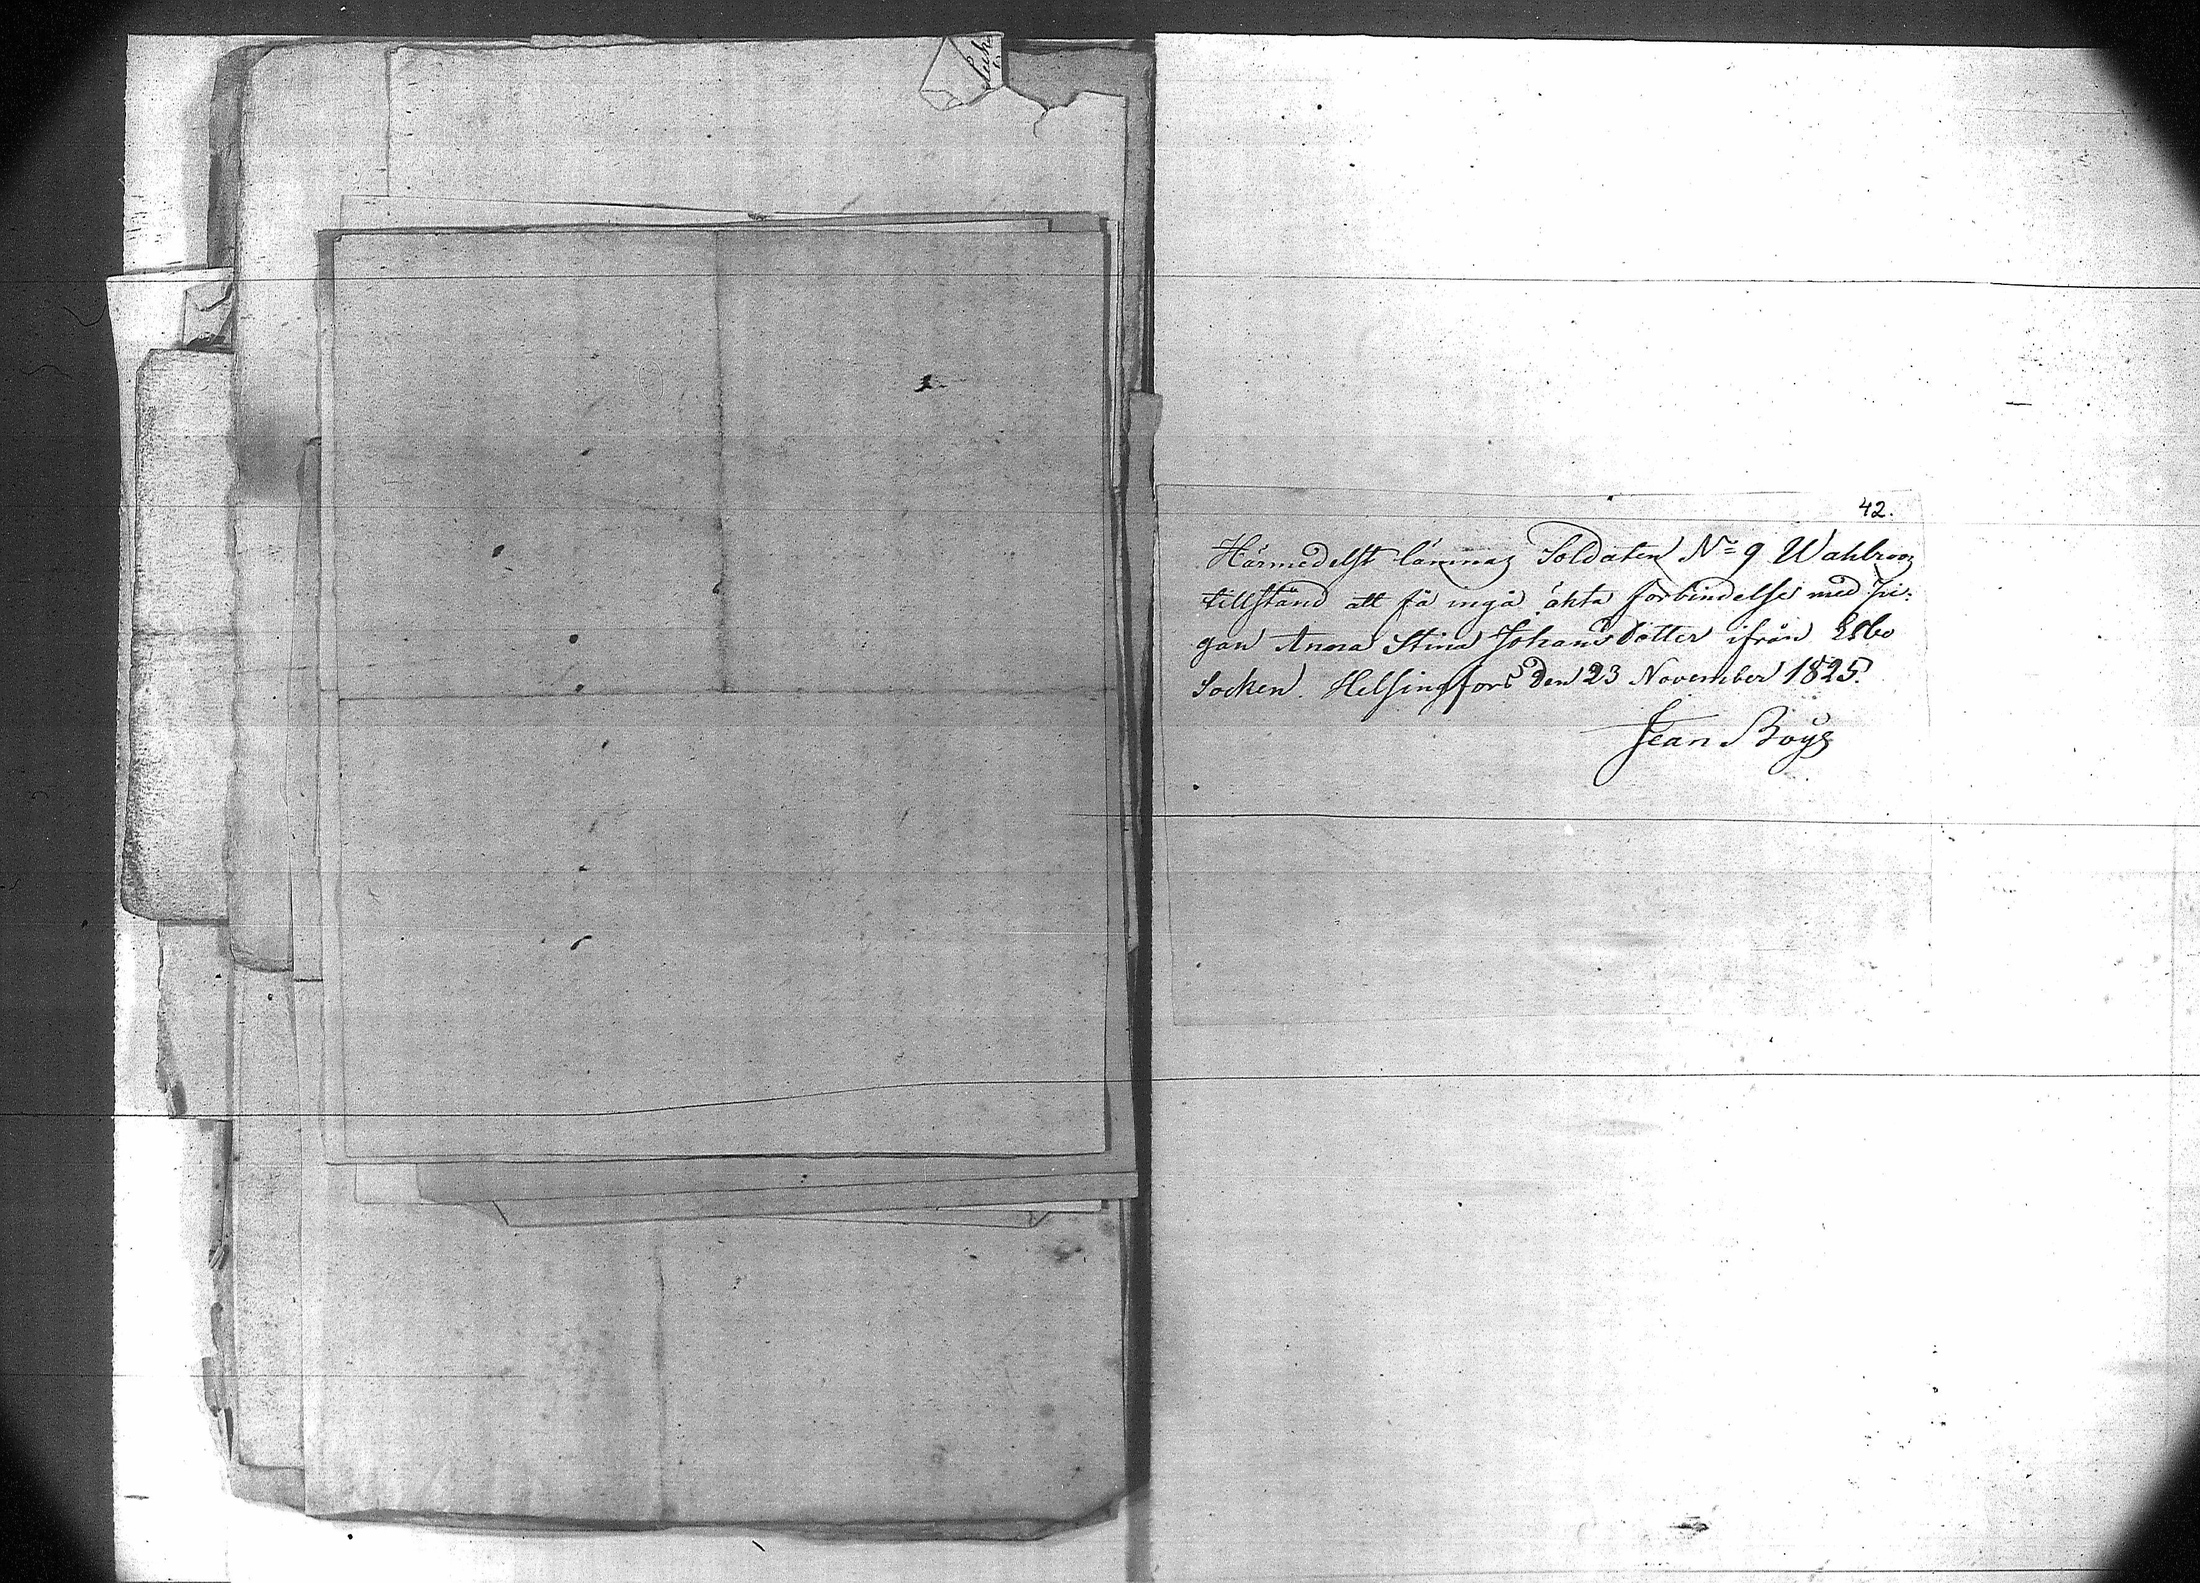 42.
Härmedelst lämnas Soldaten No 9 Wahlroos
tillstånd att få ingå äkta förbindelse med Pi:
gan Anna Stina Johans Dotter ifrån Esbo
Socken. Helsingfors den 23 November 1825.
Jean Boije